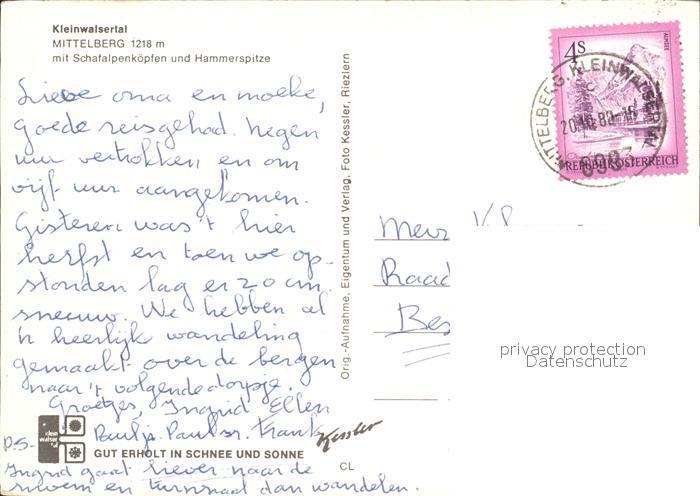 Kleinwalsertal
MITTELBERG 1218 m
mit Schafalpenköpfen und Hammerspitze
Lieve oma en moeke,
Goede reis gehad. Negen
uur vertrokken en om
vijf uur aangekomen.
Gisteren was 't hier
herfst en toen we op-
stonden lag er 20 cm.
sneeuw. We hebben al
'n heerlijk wandeling
gemaakt over de bergen
naar 't volgende dorpje.
Groetjes, Ingrid Ellen
Paultje. Paul sr. Frank
GUT ERHOLT IN SCHNEE UND SONNE
P.S- Ingrid gaat liever naar de
en dan wandelen.
CL
Kessler
Orig.-Aufnahme, Eigentum und Verlag, Foto Kessler, Riezlern
4 S
ALMSEE
REPUBLIK ÖSTERREICH
MITTELBERG, KLEINWALSERTAL
Mevr
Raad
Bes
privacy protection
Datenschutz